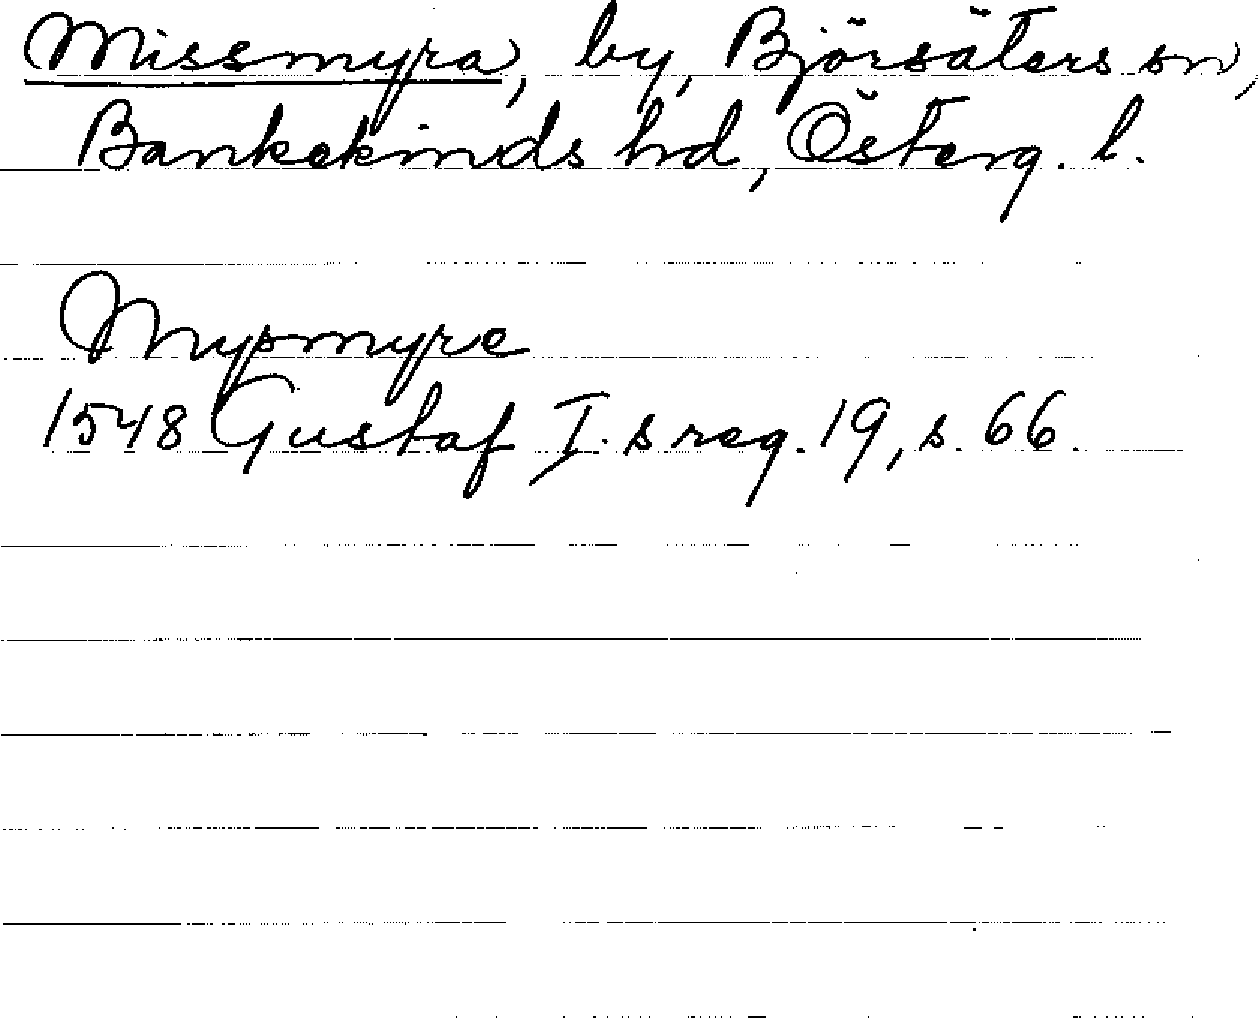 Missmyra, by, Björsäters sn,
Bankekinds hd, Österg. l.
Mysmyre
1548 Gustaf I.s reg. 19, s. 66.